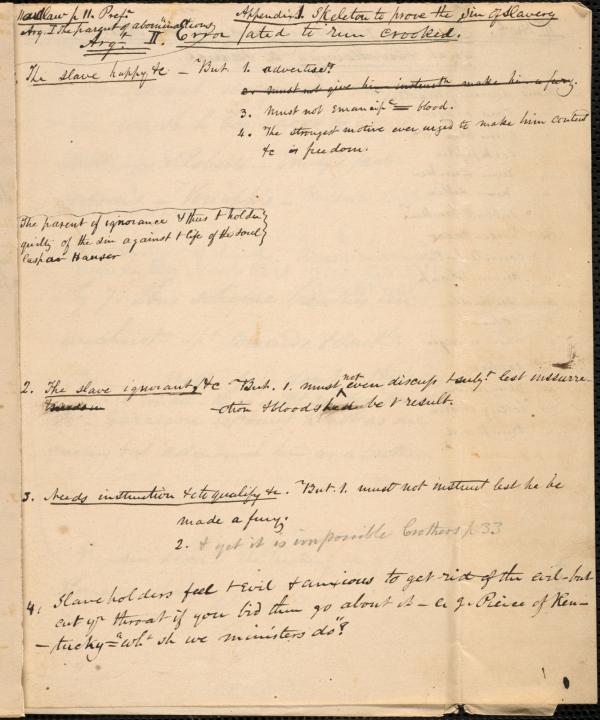 law p 11. Pref.
Appendix 1. Skeleton to prove the Sin of Slavery
Arg. I The parent of abominations
Argt II. Error fated to run crooked.
The slave happy &c - But 1. advertisets
2. must not give him instructn make him a fury.
3. Must not Emancipe = blood.
4. The strongest motive ever urged to make him content
&c is freedom.
The parent of ignorance & thus t holder
guilty of the sin against t life of the soul
Caspar Hauser
2. The slave ignorant, &c But. 1. must not even discuss t subjt lest insurre-
-ction & bloodshed be t result.
3. Needs instruction &c to qualify &c. But. 1. must not instruct lest he be
made a fury.
2. & yet it is impossible Crothers p 33
4. Slaveholders feel t Evil & anxious to get rid of the evil - but
cut yr throat if you bid them go about it - e.g. Pierce of Ken-
-tucky = "wht sh we ministers do"?